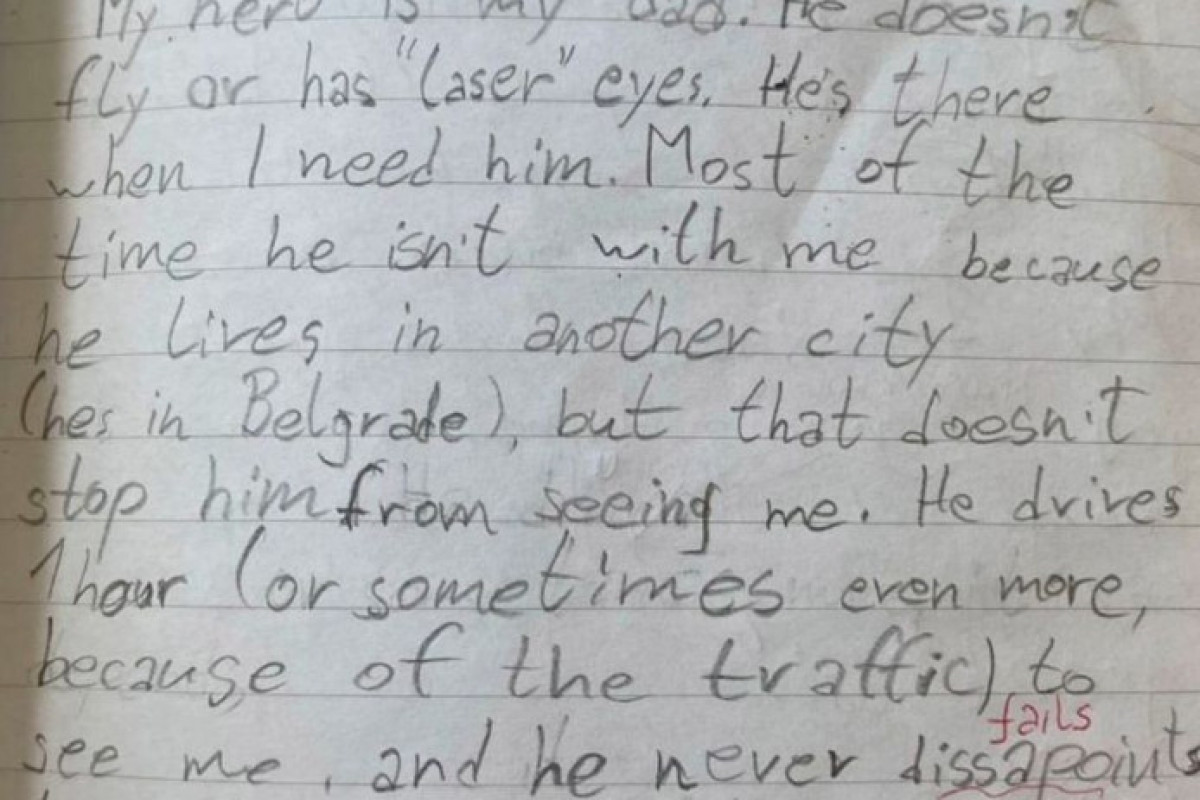 My hero is my dad. He doesn't
fly or has "laser" eyes. He's there
when I need him. Most of the
time he isn't with me because
he lives in another city
(hes in Belgrade), but that doesn't
stop him from seeing me. He drives
1 hour (or sometimes even more,
because of the traffic) to
fails
see me, and he never dissapoints